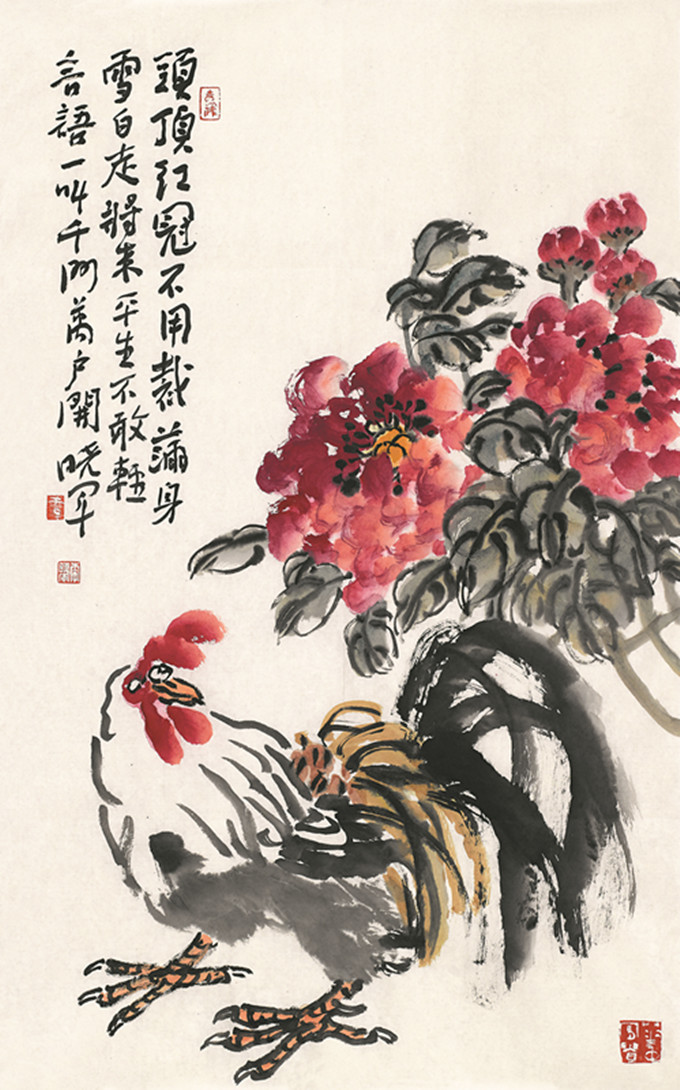 頭頂红冠不用裁滿身
雪白走將来平生不敢輕
言語一叫千门萬户開晓军